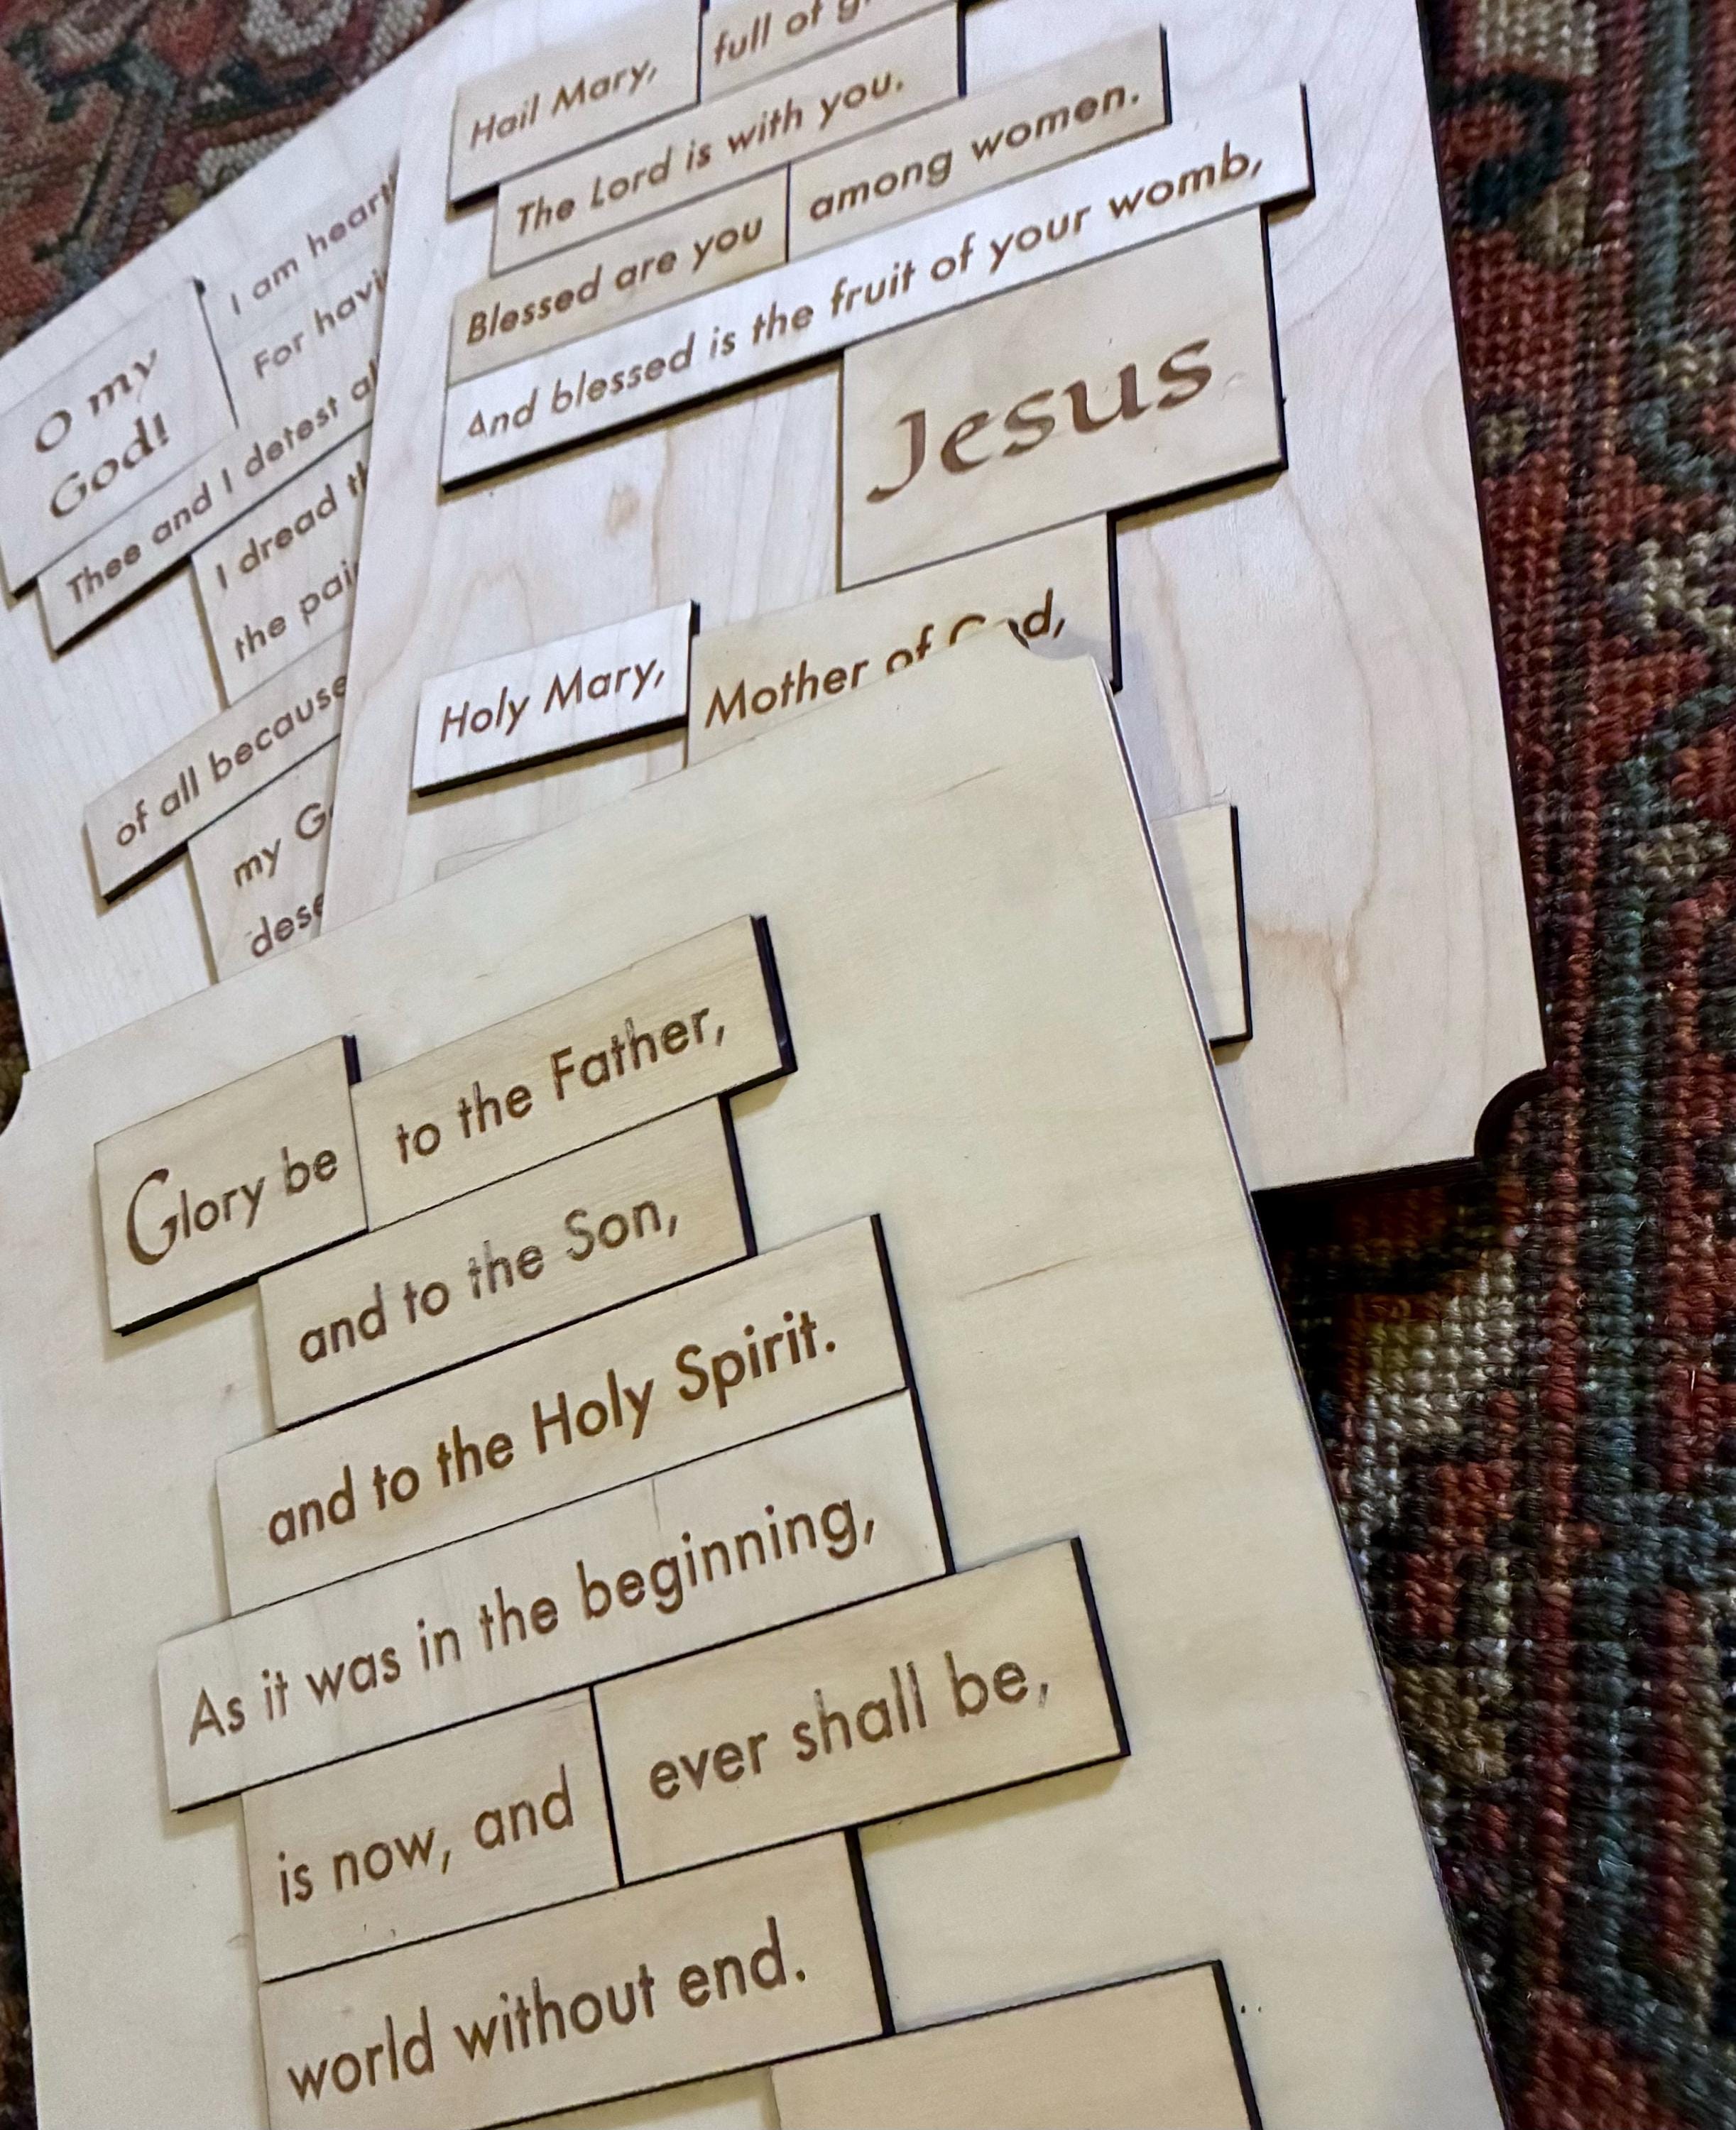 O my
God!
I am
For
Thee and I detest
I dread
the
of all because
my
Hail Mary,
full of
The Lord is with you.
Blessed are you
among women.
And blessed is the fruit of your womb,
Jesus
Holy Mary,
Mother of
Glory be
to the Father,
and to the Son,
and to the Holy Spirit.
As it was in the beginning,
is now, and
ever shall be,
world without end.